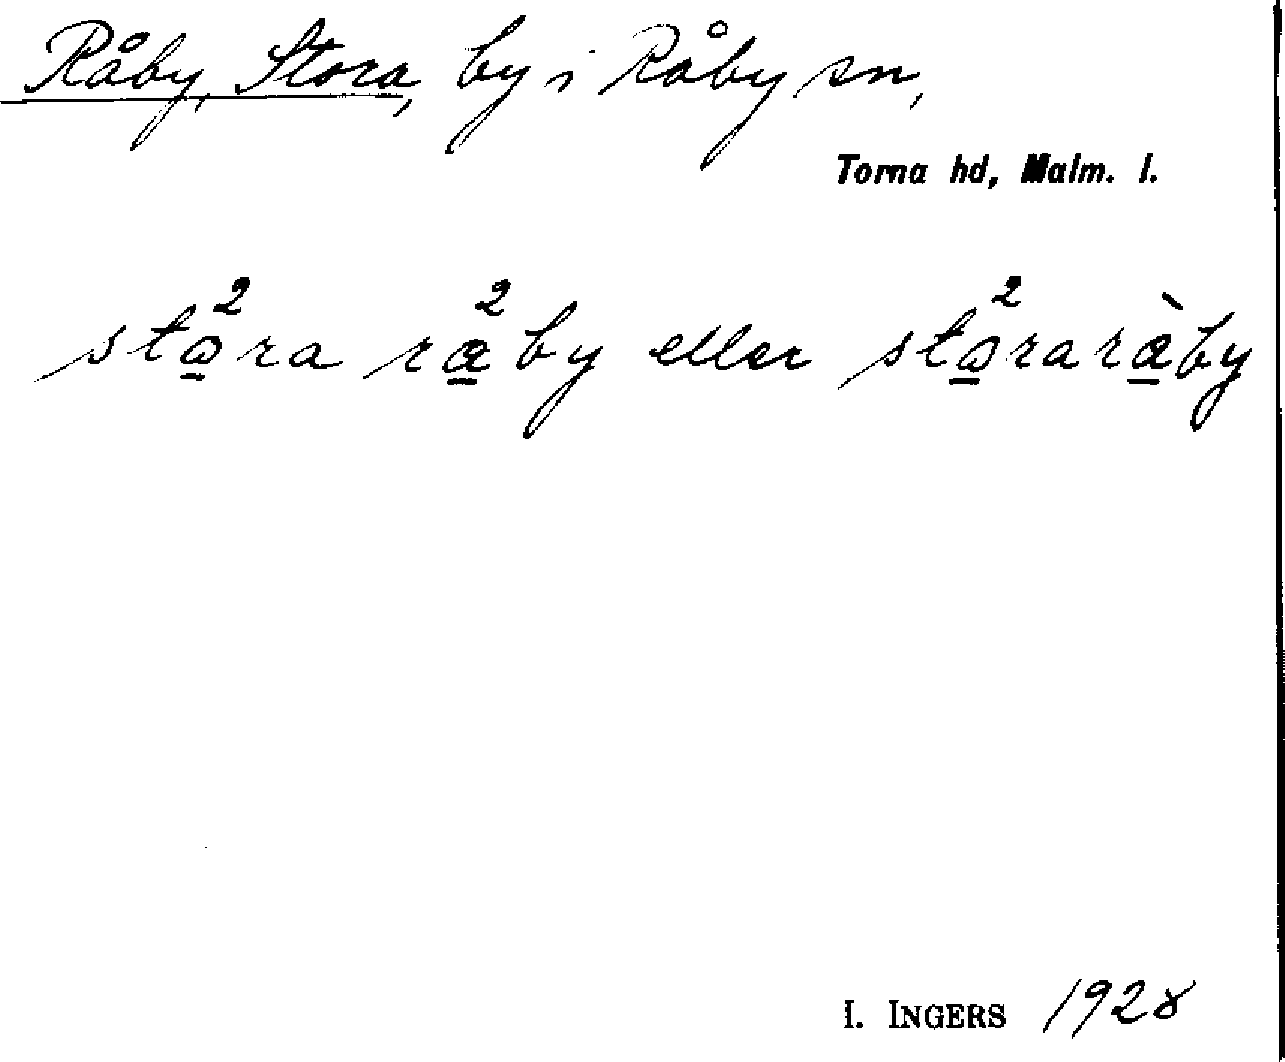 Råby, Stora, by i Råby sn,
Torna hd, Malm. l.
sto̲²ra ra̲²by eller sto̲²rarà̲by
I. INGERS 1928